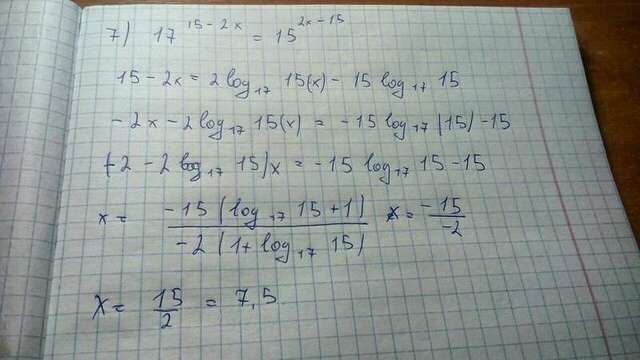 7) 17^15-2x = 15^2x-15
15-2x = 2log₁₇ 15(x) - 15 log₁₇ 15
-2x - 2log₁₇ 15(x) = -15 log₁₇ (15) - 15
(-2 - 2log₁₇ 15)x = -15 log₁₇ 15 - 15
x = -15(log₁₇ 15+1) / -2(1+log₁₇ 15) x = -15 / -2
x = 15 / 2 = 7,5